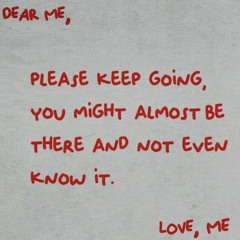 DEAR ME,
PLEASE KEEP GOING,
YOU MiGHT ALMOST BE
THERE AND NOT EVEN
KNOW iT.
LOVE, ME